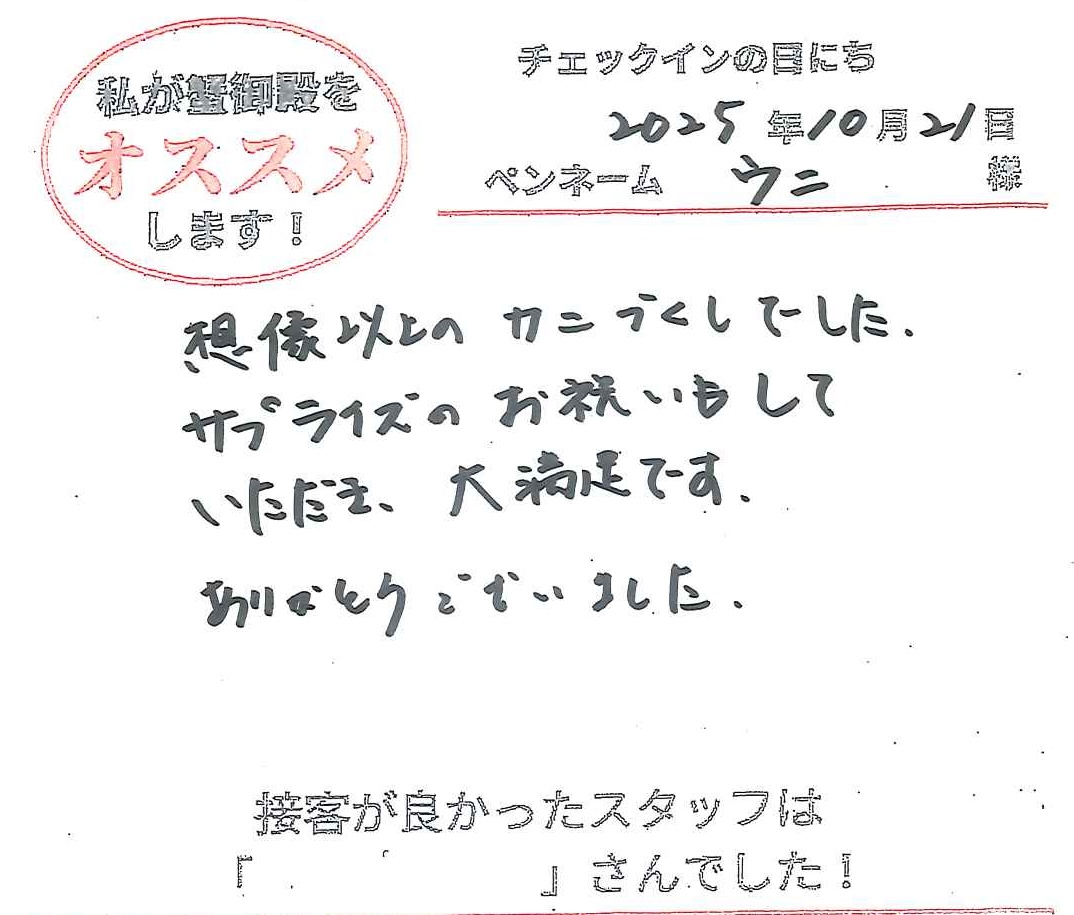 私が蟹御殿を
オススメ
します！
チェックインの日にち
2025年10月21日
ペンネーム ウニ 様
想像以上のカニづくしでした.
サプライズのお祝いもして
いただき、大満足です.
ありがとうございました.
接客が良かったスタッフは
「 」さんでした！